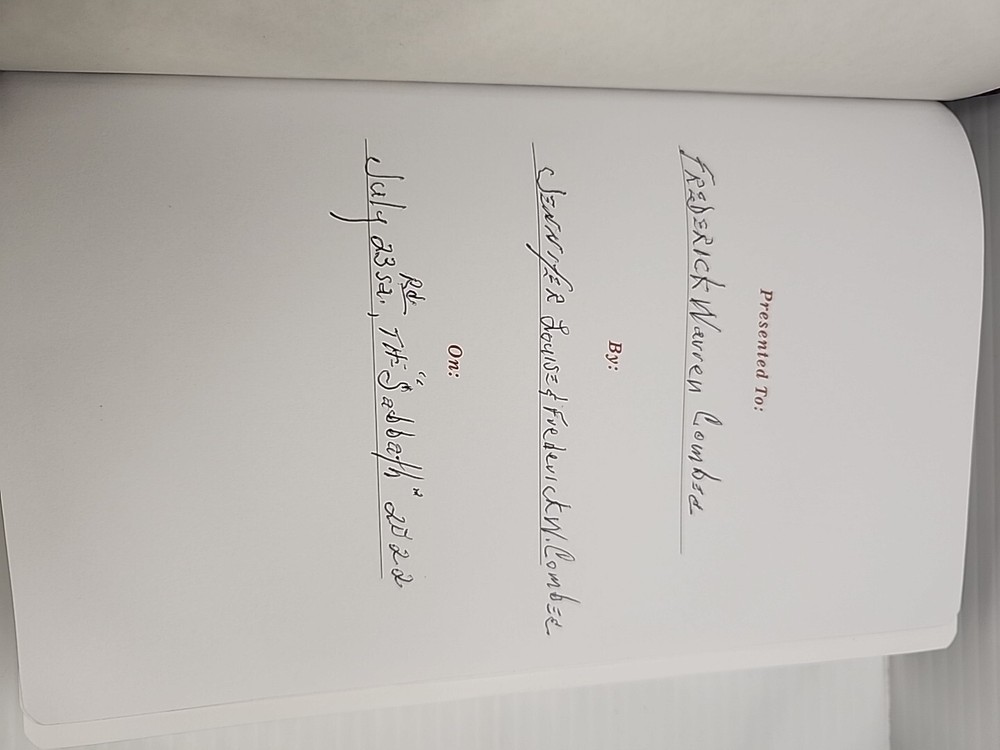 Presented To:
FREDERICK Warren Combee
By:
JENNIFER Louise & Frederick W. Combee
On:
July 23 Rd Sa., THE "Sabbath" 2022